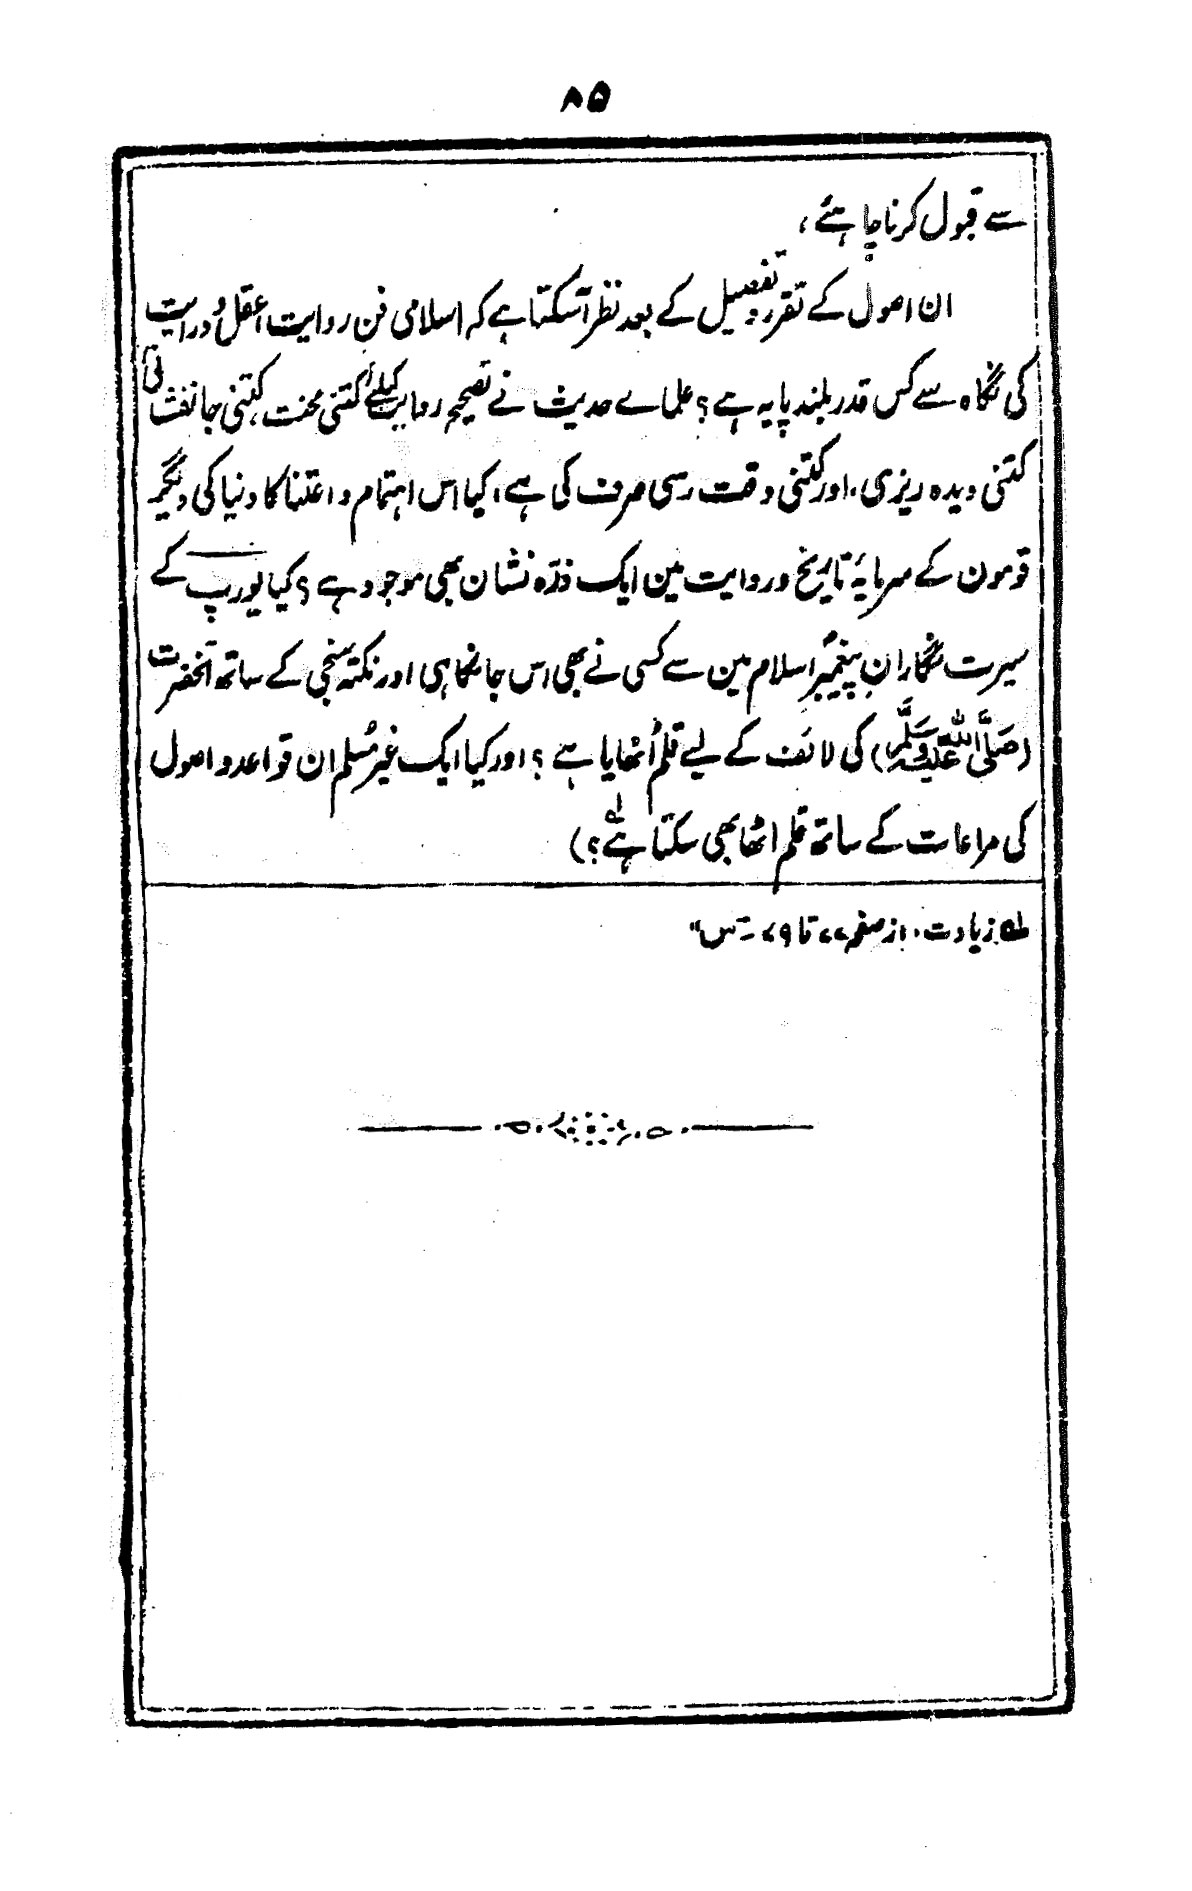 ۸۵
سے قبول کرنا چاہئے،
ان اصول کے تقرر و تفصیل کے بعد نظر آسکتا ہے کہ اسلامی فن روایت عقل و درایت
کی نگاہ سے کس قدر بلند پایہ ہے؟ علماے حدیث نے تصحیح روایت کیلئے کتنی محنت، کتنی جانفشانی
کتنی دیدہ ریزی، اور کتنی دقت رسی صرف کی ہے، کیا اس اہتمام و اعتنا کا دنیا کی دیگر
قومون کے سرمایۂ تاریخ و روایت مین ایک ذرّہ نشان بھی موجود ہے؟ کیا یورپ کے
سیرت نگارانِ پیغمبرِ اسلام مین سے کسی نے بھی اس جانکاہی اور نکتہ سنجی کے ساتھ آنحضرت
(صلی اللہ علیہ وسلم) کی لائف کے لیے قلم اُٹھایا ہے؟ اور کیا ایک غیر مُسلم ان قواعد و اصول
کی مراعات کے ساتھ قلم اٹھا بھی سکتا ہے؟)
زیادت، از صفحہ ۷۷ تا ۷۹ "س"